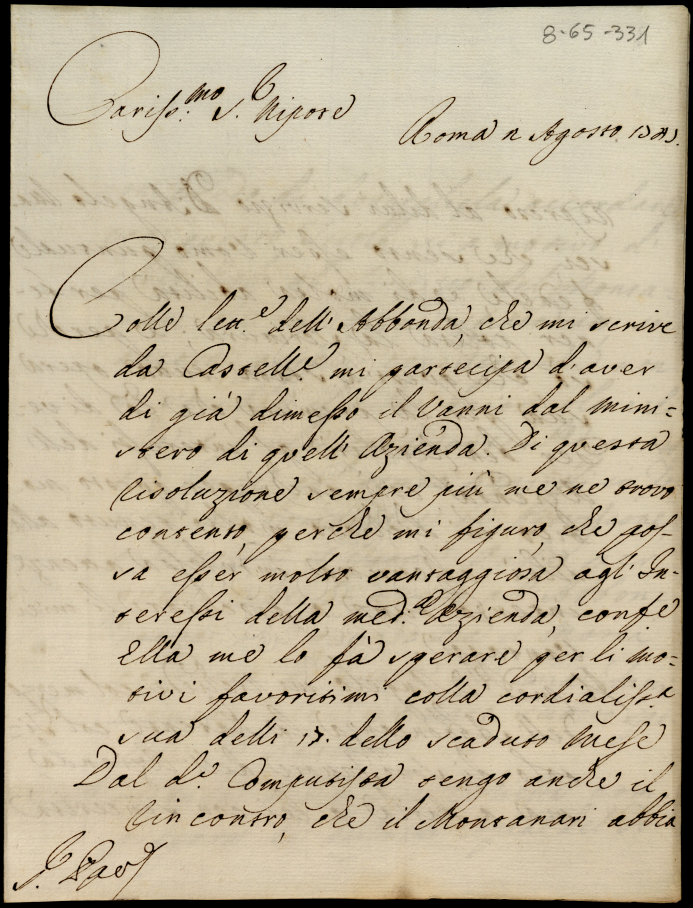 8-65-331
Cariss.mo S.r Nipote
Roma Agosto
Colle lett.e dell' Abbonda, che mi scrive
da Castell.e mi partecipa d'aver
di già dimesso il Vanni dal mini=
stero di quell' Azienda. Di questa
risoluzione sempre più me ne trovo
contento, perchè mi figuro, che pos-
sa esser molto vantaggiosa agl' In-
teressi della med.a Azienda, conf.e
Ella me lo fà sperare per li mo=
tivi favoritimi colla cordialiss.a
sua delli 17. dello scaduto Mese
Dal d.o Computista tengo anche il
rincontro, che il Montanari abbia